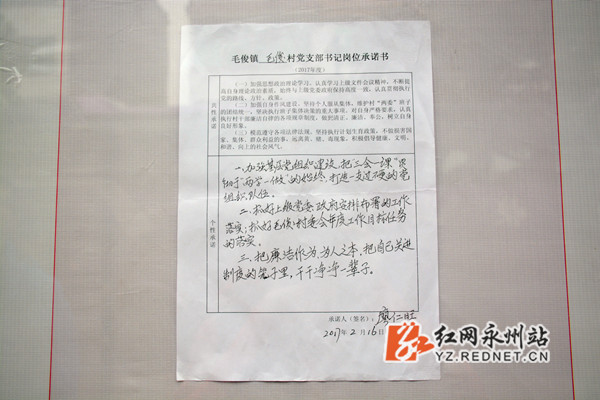 毛俊镇 毛俊 村党支部书记岗位承诺书
（2017年度）
共性承诺
（一）加强思想政治理论学习，认真学习上级文件会议精神，不断提
高自身理论政治素质，始终与上级党委政府保持高度一致，认真贯彻执行
党的路线、方针、政策。
（二）加强自身作风建设，坚持个人服从集体，维护村“两委”班子
的团结统一，坚决执行班子集体决策的重大事项，对自身严格要求，认真
执行村干部廉洁自律的各项规章制度，做到清正、廉洁、奉公，树立自身
良好形象。
（三）模范遵守各项法律法规，坚持执行计划生育政策，不做损害国
家、集体、群众利益的事，远离黄、赌、毒现象，积极倡导健康、文明、
和谐、向上的社会风气。
个性承诺
一、加强基层党组织建设，把三会一课“贯
于“两学一做”的始终，打造一支过硬的党
组织队伍。
二、抓好上级党委、政府安排布署的工作
落实；抓好毛俊村委会年度工作目标任务
的落实。
三、把廉洁作为为人之本，把自己关进
制度的笼子里，干干净净一辈子。
承诺人（签名）：廖仁旺
2017年2月16日
红网永州站
YZ.REDNET.CN